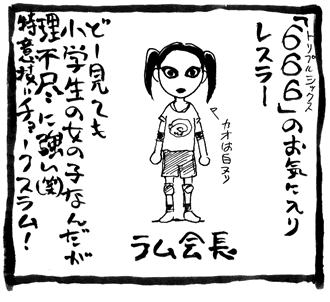 「666」のお気に入り
トリプルシックス
レスラー
カオは白ヌリ
ラム会長
どー見ても
小学生の女の子なんだが
理不尽に強い(笑)
特意技はチョークスラム!